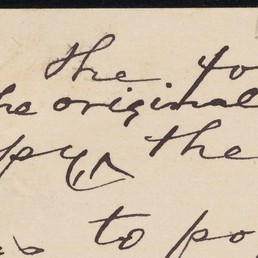 the yo
he original
py, the
to po